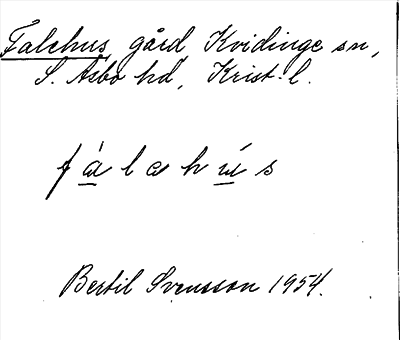 Falehus gård, Kvidinge sn,
S. Åsbo hd, Krist. l.
fál ə hús
Bertil Svensson 1954.